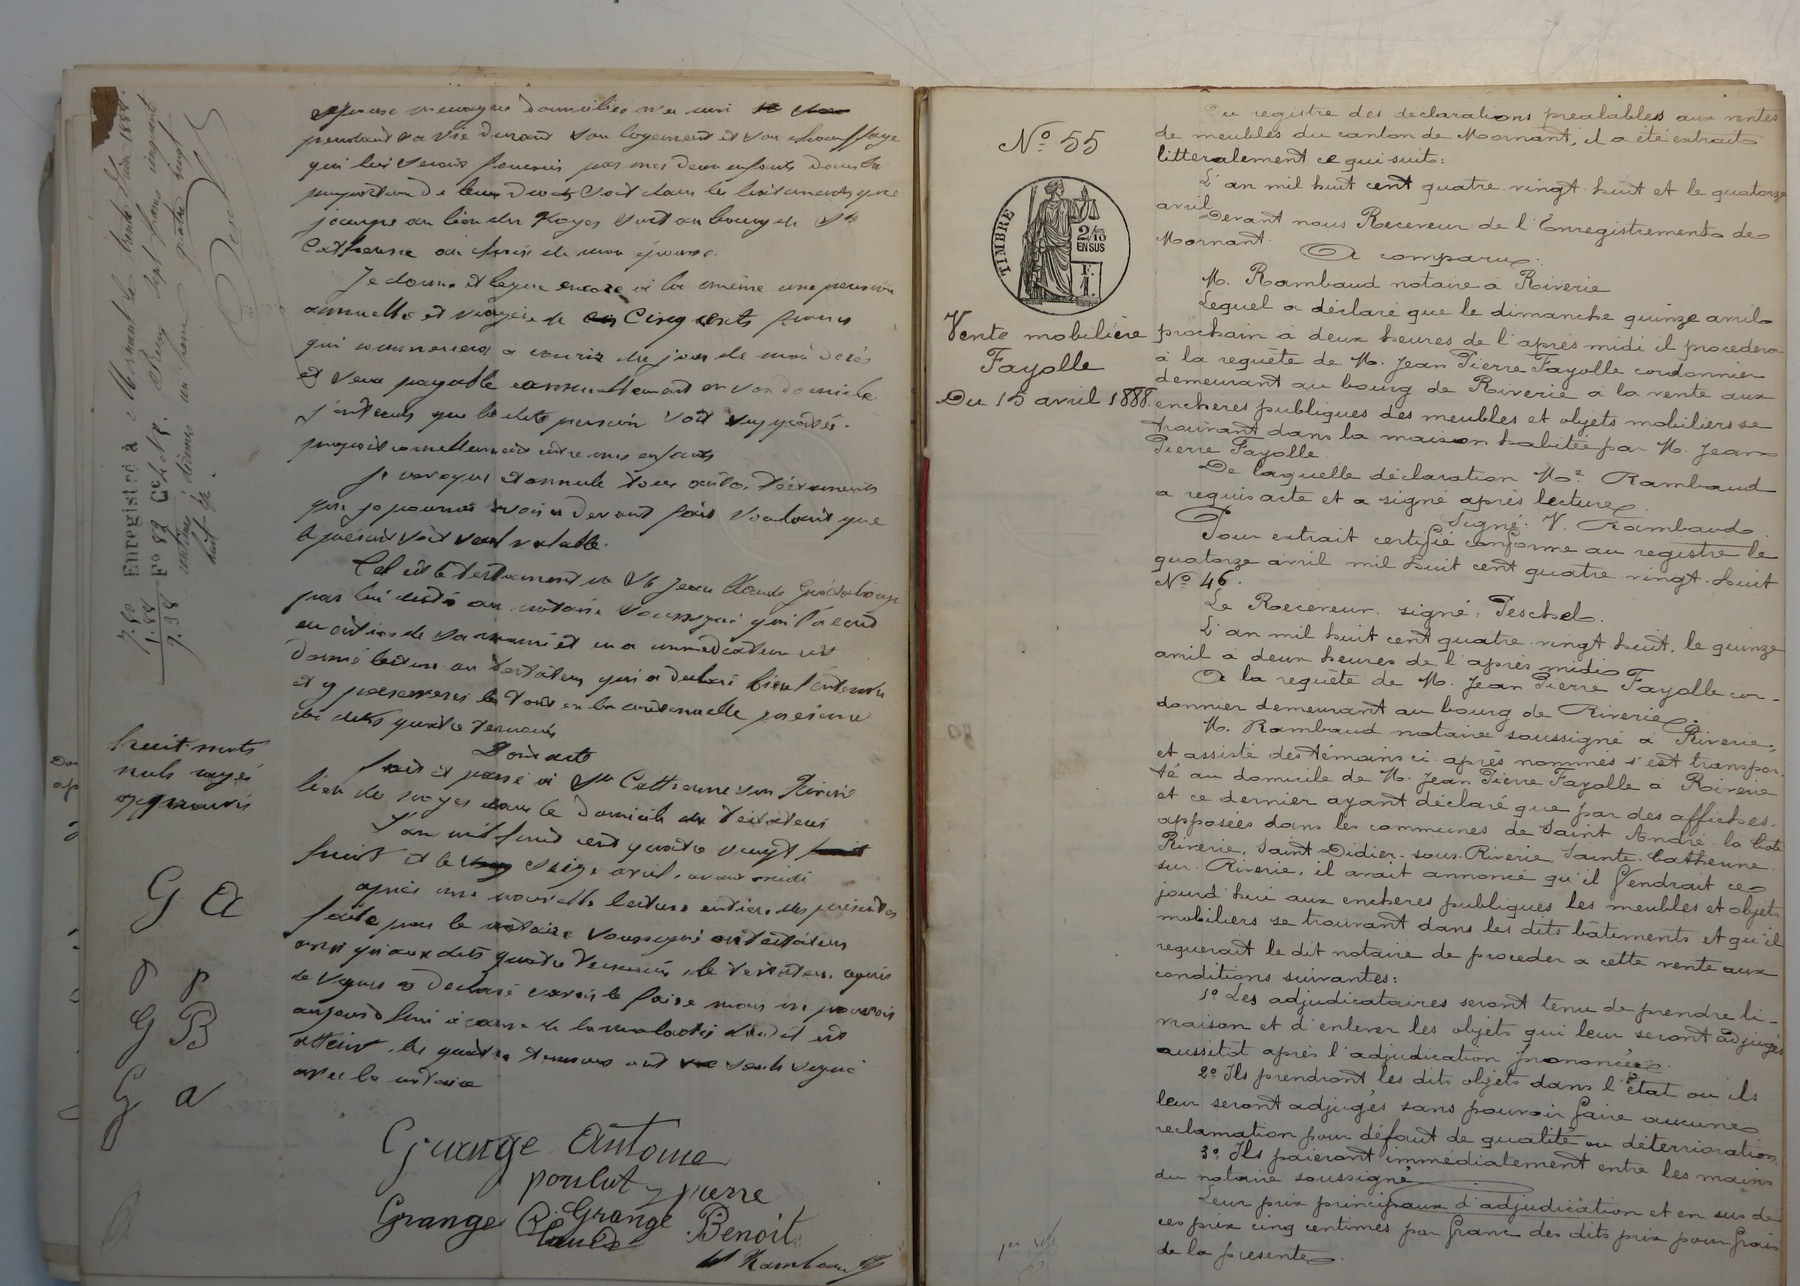 épouse ménagère domiciliée avec moi
pendant sa vie durant son logement et son chauffage
qui lui seront fournis par mes deux enfants dans la
proportion de leurs droits soit dans les bâtiments que
j'occupe au lieu des Royes soit au bourg de Ste
Catherine au choix de mon épouse.
Je donne et lègue encore à la même une pension
annuelle et viagère de Cinq cents francs
qui commencera à courir du jour de mon décès
et sera payable annuellement en son domicile
j'entends que la dite pension soit supportée
proportionnellement entre mes enfants
Je révoque et annule tous autres testaments
que je pourrais avoir devant fait voulant que
le présent soit seul valable.
Tel est le testament de Sr Jean Claude
par lui dicté au notaire soussigné qui l'a écrit
en entier de sa main et en a immédiatement
donné lecture au testateur qui a déclaré bien l'entendre
et y persévérer le tout en la continuelle présence
des dits quatre témoins
Dont acte
Fait et passé à Ste Catherine sur Riverie
lieu des Royes dans le domicile du testateur
L'an mil huit cent quatre vingt
huit et le seize avril, avant midi
après une nouvelle lecture entière des présentes
faite par le notaire soussigné au testateur
ainsi qu'aux dits quatre témoins, le testateur requis
de signer a déclaré savoir le faire mais ne pouvoir
aujourd'hui à cause de la maladie dont il est
atteint, les quatre témoins ont seuls signé
avec le notaire
Grange Antoine
poulat pierre
Grange Claude Grange Benoit
Rambaud
Enregistré à Mornant le trente Juin 1888.
F° 82 Ce
7.50
1.88
9.38
huit mots
nuls rayés
approuvés
G A
P P
G B
G a
N° 55
TIMBRE
2/10
EN SUS
F.
1.
Vente mobilière
Fayolle
Du 15 avril 1888.
Du registre des déclarations préalables aux ventes
de meubles du canton de Mornant, il a été extrait
littéralement ce qui suit:
L'an mil huit cent quatre-vingt huit et le quatorze
avril
Devant nous Receveur de l'Enregistrement de
Mornant.
A comparu:
M. Rambaud notaire à Riverie
Lequel a déclaré que le dimanche quinze avril
prochain à deux heures de l'après midi il procédera
à la requête de M. Jean Pierre Fayolle cordonnier
demeurant au bourg de Riverie à la vente aux
enchères publiques des meubles et objets mobiliers se
trouvant dans la maison habitée par M. Jean
Pierre Fayolle.
De laquelle déclaration Me Rambaud
a requis acte et a signé après lecture.
Signé: V. Rambaud.
Pour extrait certifié conforme au registre le
quatorze avril mil huit cent quatre-vingt-huit
N° 46.
Le Receveur. signé: Peschel.
L'an mil huit cent quatre-vingt huit, le quinze
avril à deux heures de l'après midi
A la requête de M. Jean Pierre Fayolle cor-
donnier demeurant au bourg de Riverie.
M. Rambaud notaire soussigné à Riverie,
et assisté des témoins ci-après nommés s'est transpor-
té au domicile de M. Jean Pierre Fayolle à Riverie
et ce dernier ayant déclaré que par des affiches
apposées dans les communes de Saint André-la-Côte
Riverie, Saint-Didier-sous-Riverie Sainte-Catherine
sur-Riverie, il avait annoncé qu'il Vendrait ce
jourd'hui aux enchères publiques les meubles et objets
mobiliers se trouvant dans les dits bâtiments et qu'il
requerait le dit notaire de procéder à cette vente aux
conditions suivantes:
1° Les adjudicataires seront tenu de prendre li-
vraison et d'enlever les objets qui leur seront adjugés
aussitôt après l'adjudication prononcée.
2° Ils prendront les dits objets dans l'état ou ils
leur seront adjugés sans pouvoir faire aucune
réclamation pour défaut de qualité ou détérioration
3° Ils paieront immédiatement entre les mains
du notaire soussigné
Leur prix principaux d'adjudication et en sus de
ces prix cinq centimes par franc des dits prix pour frais
de la présente.